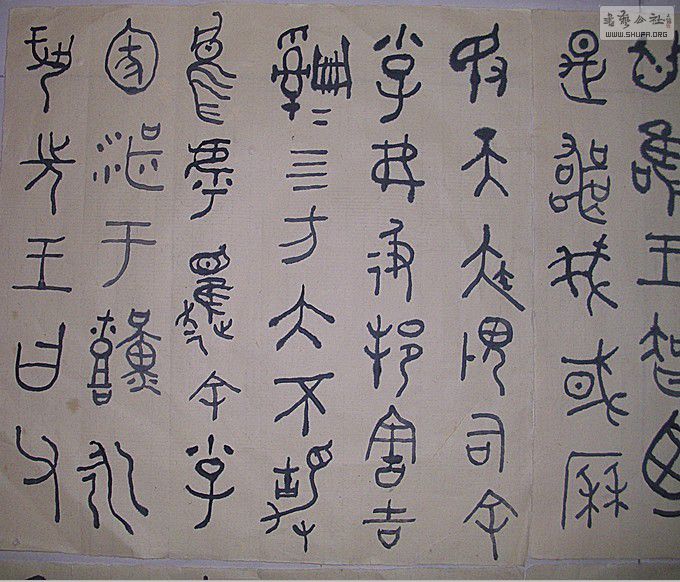 唯王智廼
是喪我或歷
敃天疾畏司余
小子弗彶邦害吉
四方大不靜
烏虖趯余小子
圂湛于艱永
巩先王曰父
书艺公社
WWW.SHUFA.ORG